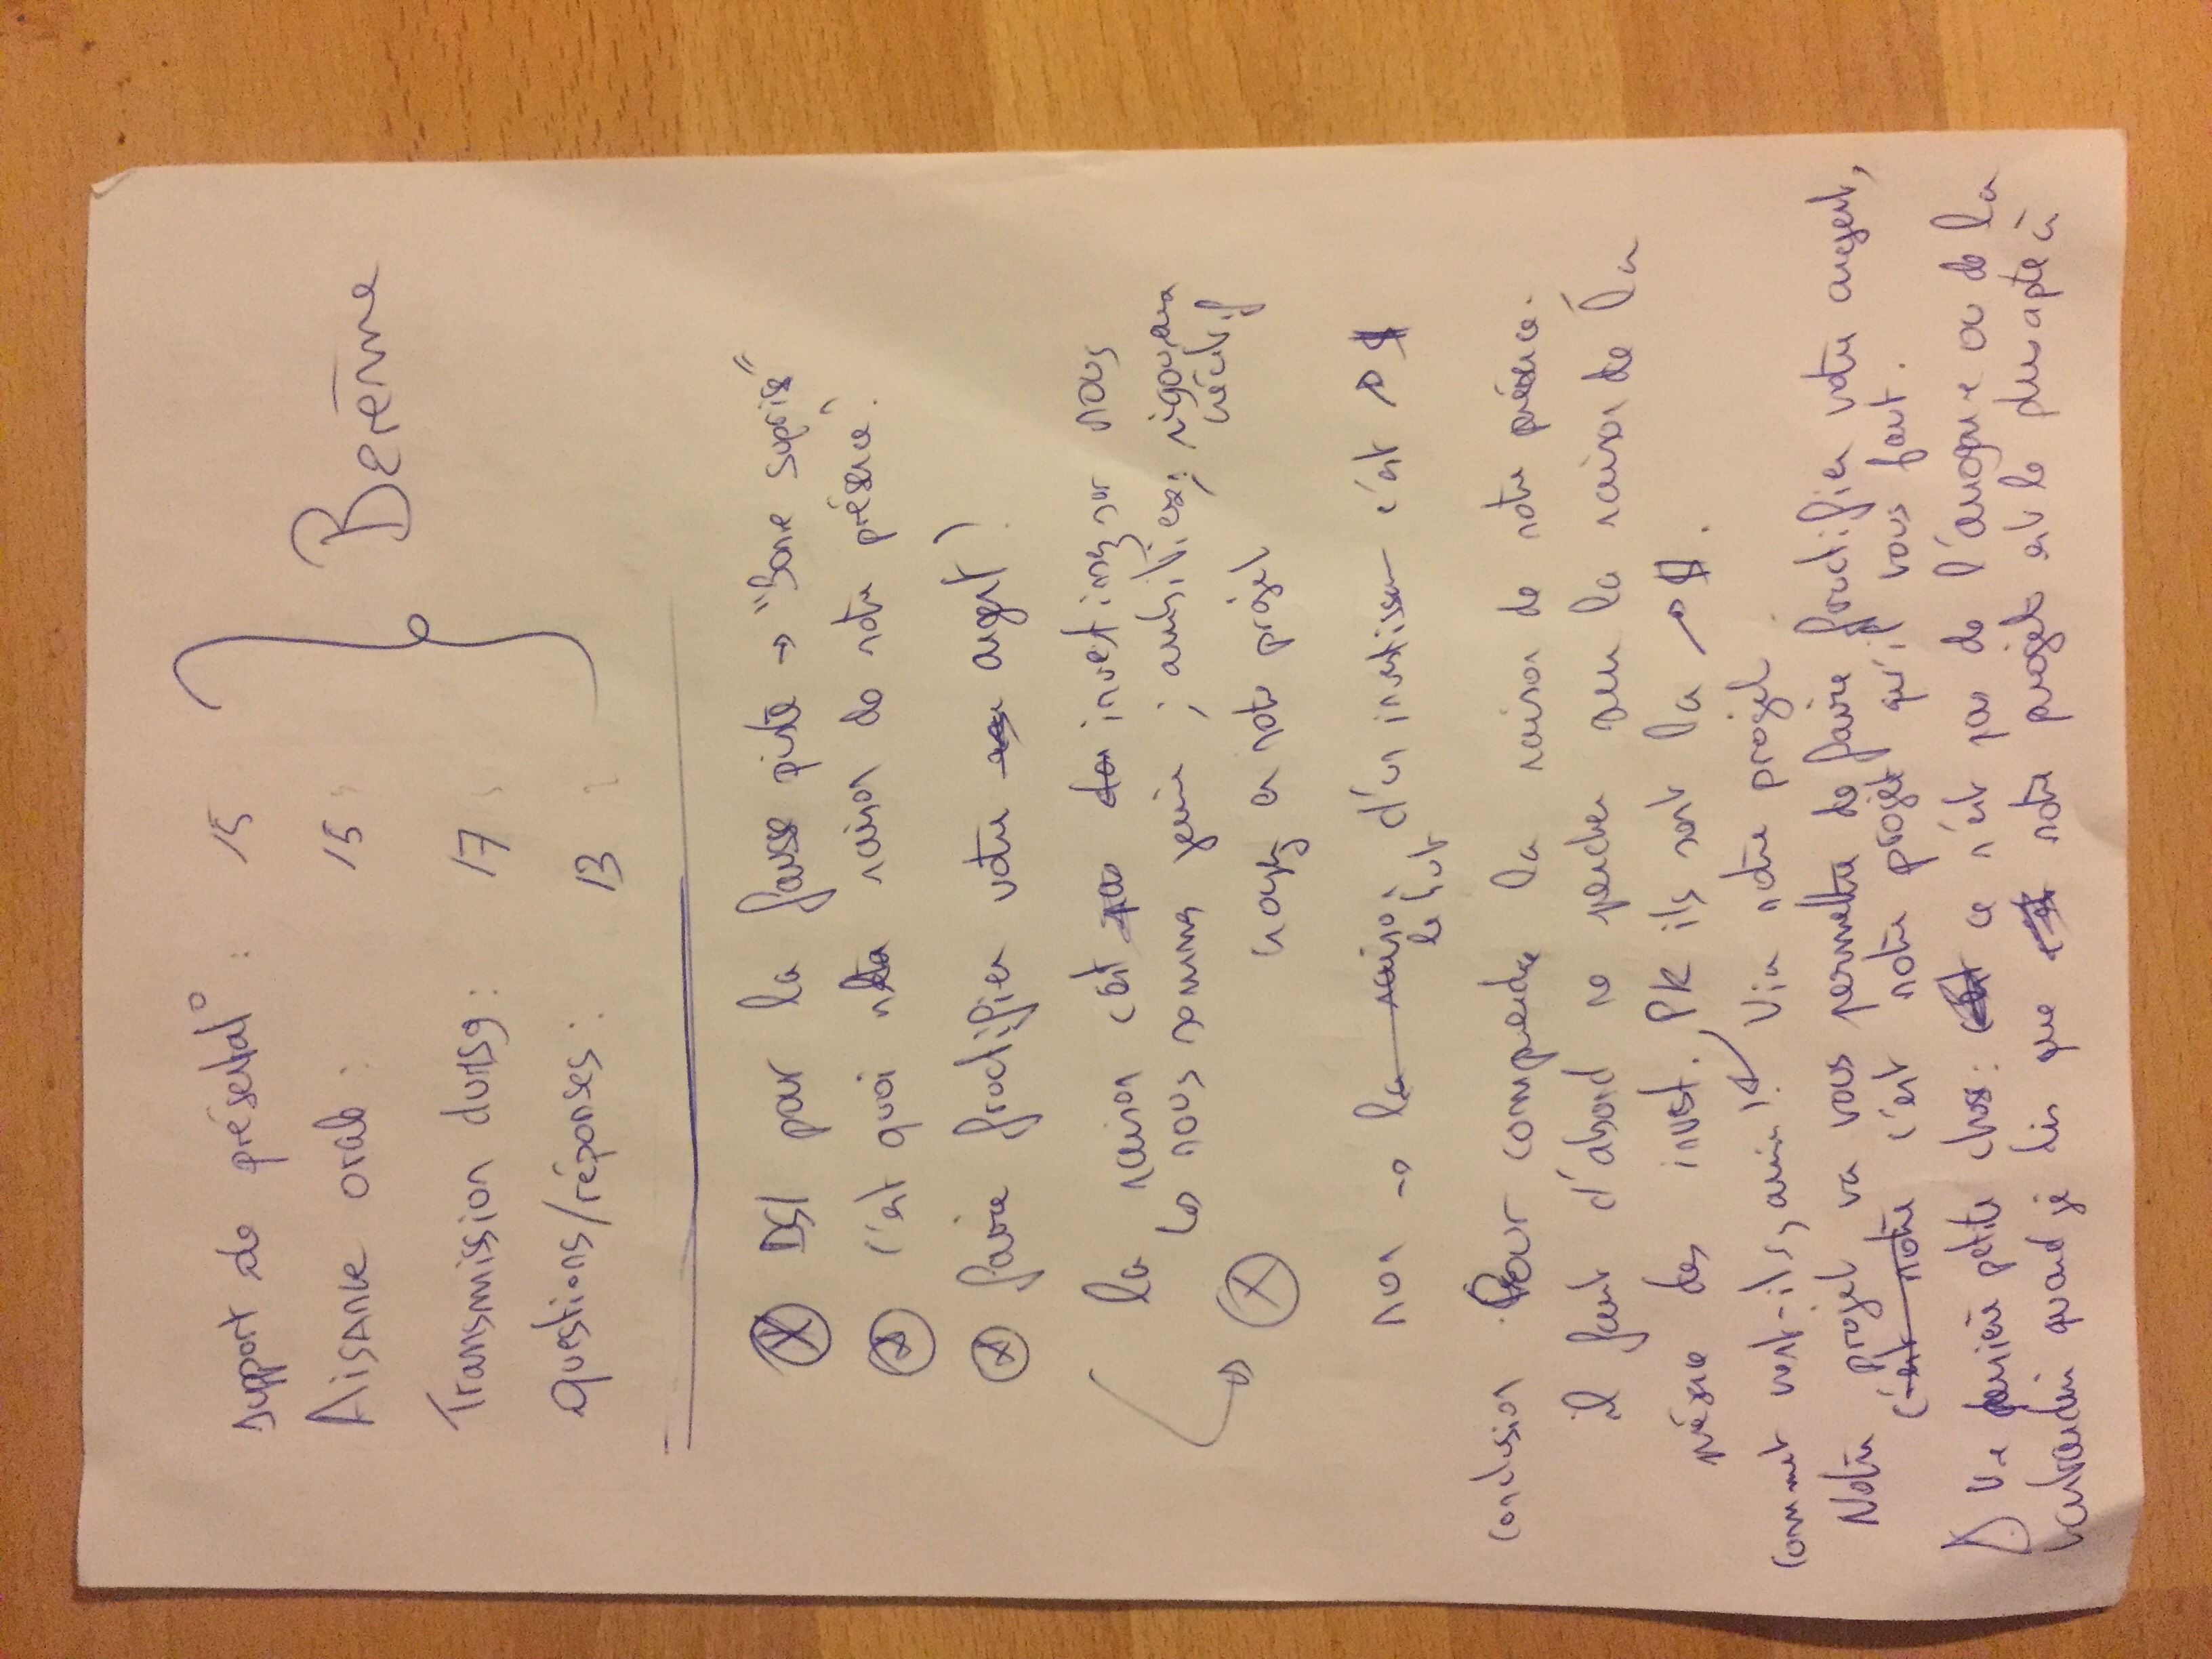 support de présentat° : 15
Aisance orale : 15
Transmission du Msg : 17
questions/réponses : 13
Bérénice
DSl pour la fausse piste → "Bonne suprise"
c'est quoi la raison de notre présence ?
faire fructifier votre argent !
la raison c'est investissez sur nous
nous sommes jeune ; ambitieux ; rigoureux
créatif
croyez en notre projet
non → la raison d'un investisseur c'est ↗ $
le but
conclusion Pour comprendre la raison de notre présence.
il faut d'abord se pencher sur la raison de la
présence des invest. PK ils sont la ↗ $.
comment vont-ils y arriver !? Via notre projet.
Notre projet va vous permettre de faire fructifier votre argent,
c'est notre c'est notre projet qu'il vous faut.
Une dernière petite chose : ce n'est pas de l'arrogance ou de la
quand je dis que notre projet est le plus apte à